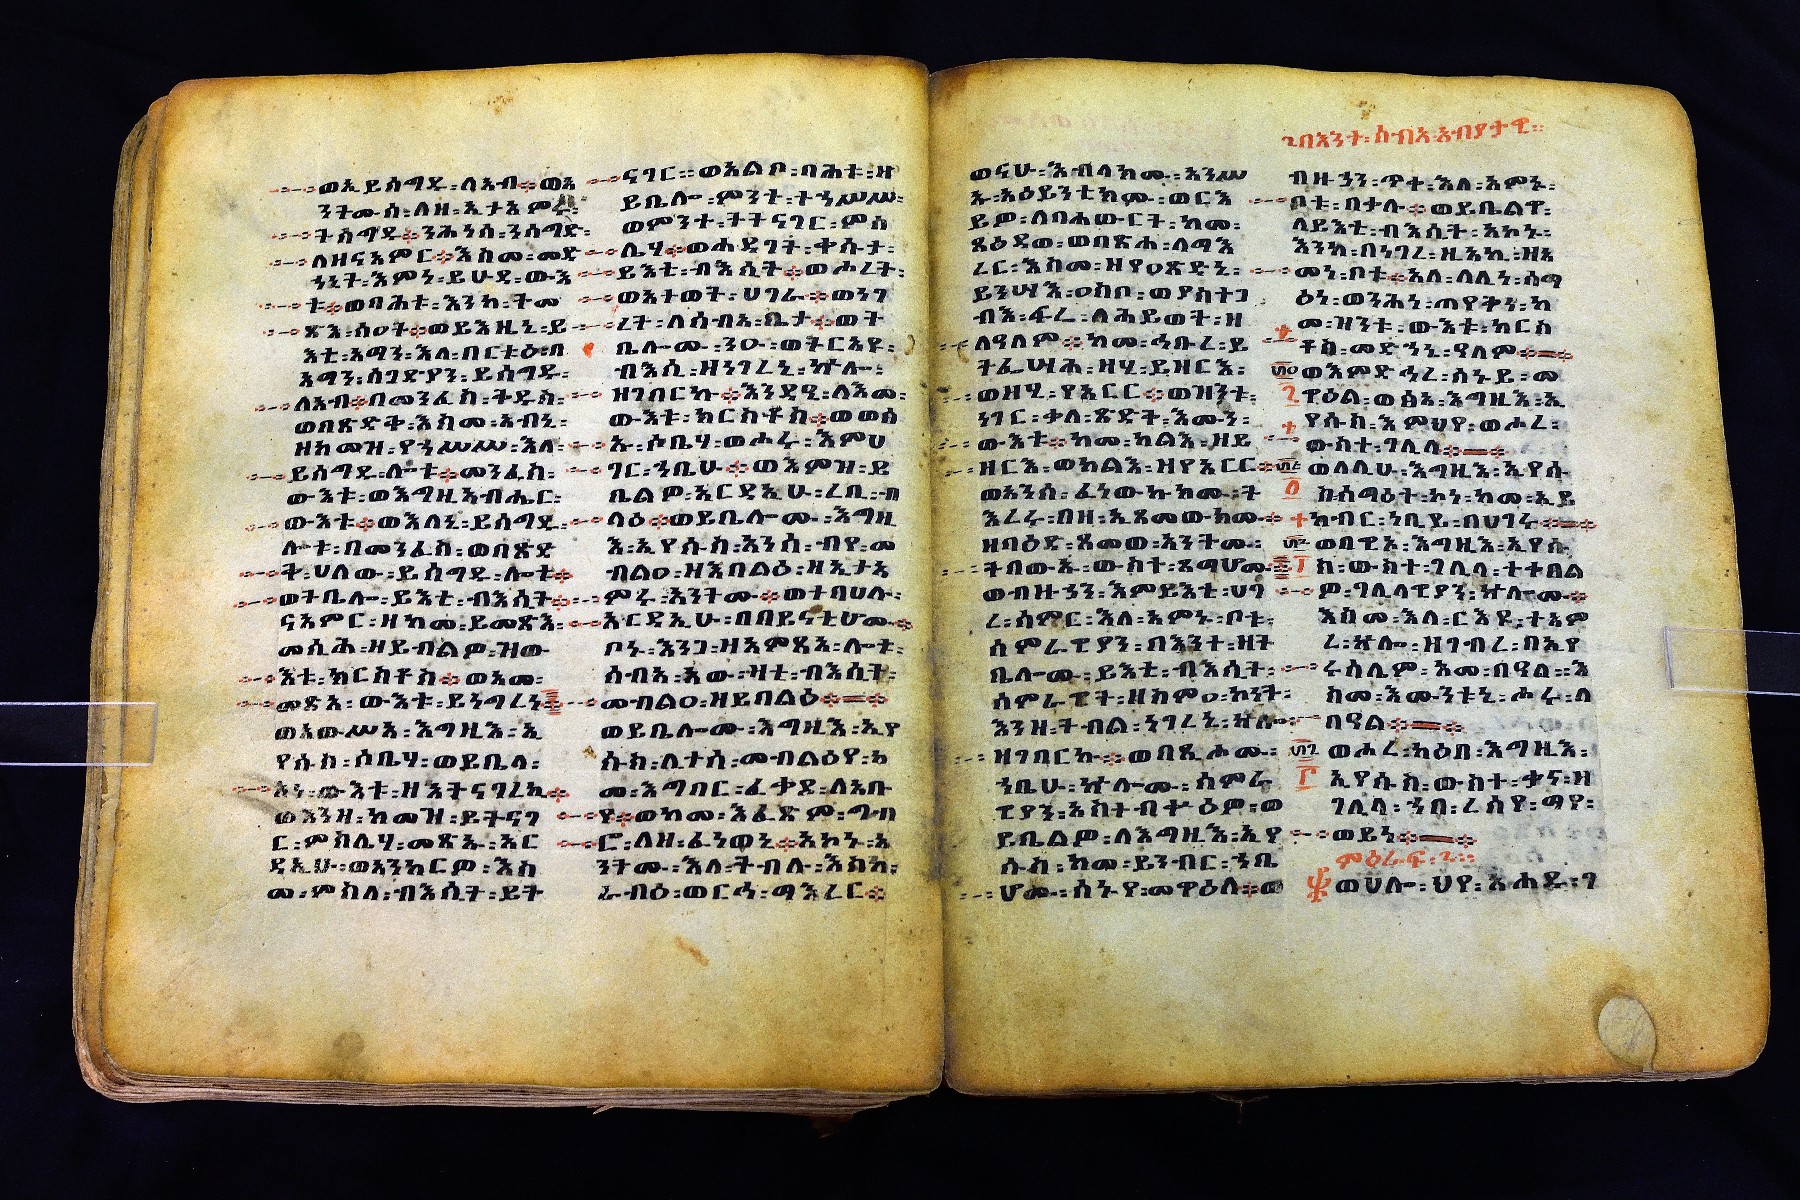 ወኢይሰግዱ፡ለአብ፡ወአ
ንትሙሰ፡ለዘ፡ኢታአምሩ፡
ትሰግዱ፡ንሕነሰ፡ንሰግድ፡
ለዘናአምር፡እስመ፡መድ
ኀኒት፡እምነ፡ይሁዳ፡ውእ
ቱ፡ወባሕቱ፡እንከ፡ትመ
ጽእ፡ሰዐት፡ወይእዜኒ፡ይ
እቲ፡አማን፡እለ፡በርቱዕ፡በ
አማን፡ሰገድያን፡ይሰግዱ፡
ለአብ፡በመንፈስ፡ቅዱስ፡
ወበጽድቅ፡እስመ፡አብኒ፡
ዘከመዝ፡የኀሥሥ፡እለ፡
ይሰግዱ፡ሎቱ፡መንፈስ፡
ውእቱ፡ወእግዚአብሔር፡
ውእቱ፡ወእለኒ፡ይሰግዱ፡
ሎቱ፡በመንፈስ፡ወበጽድ
ቅ፡ሀለው፡ይሰግዱ፡ሎቱ
ወትቤሎ፡ይእቲ፡ብእሲት
ናአምር፡ዘከመ፡ይመጽእ፡
መሲሕ፡ዘይብልዎ፡ዝው
እቱ፡ክርስቶስ፡ወአመ፡
መጽአ፡ውእቱ፡ይነግረነ
ወአውሥአ፡እግዚእ፡ኢ
የሱስ፡ሶቤሃ፡ወይቤላ፡
አነ፡ውእቱ፡ዘእትናገረኪ
ወእንዘ፡ከመዝ፡ይትናገ
ር፡ምስሌሃ፡መጽኡ፡አር
ዳኢሁ፡ወአንከርዎ፡እስ
መ፡ምስለ፡ብእሲት፡ይት
ናገር፡፡ወአልቦ፡በሕቱ፡ዘ
ይቤሎ፡ምንት፡ተኀሥሥ፡
ወምንተ፡ትትናገር፡ምስ
ሌሃ፡ወሐደገት፡ቀሱታ፡
ይእቲ፡ብእሲት፡ወሖረት፡
ወአተወት፡ሀገራ፡ወነገ
ረት፡ለሰብአ፡ቤታ፡ወት
ቤሎሙ፡ንዑ፡ወትርአዩ፡
ብእሲ፡ዘነገረኒ፡ኵሎ፡
ዘገበርኩ፡እንዳዒ፡ለእመ፡
ውእቱ፡ክርስቶስ፡ወወፅ
ኡ፡ሶቤሃ፡ወሖሩ፡እምሀ
ገር፡ኀቤሁ፡ወእምዝ፡ይ
ቤልዎ፡አርዳኢሁ፡ረቢ፡ብ
ላዕ፡ወይቤሎሙ፡እግዚ
እ፡ኢየሱስ፡አንሰ፡ብየ፡መ
ብልዐ፡ዘእበልዕ፡ዘኢታአ
ምሩ፡አንትሙ፡ወተበሀሉ፡
አርዳኢሁ፡በበይናቲሆሙ
ቦኑ፡እንጋ፡ዘአምጽአ፡ሎቱ፡
ሰብእ፡አው፡ዛቲ፡ብእሲት፡
መብልዐ፡ዘይበልዕ
ወይቤሎሙ፡እግዚእ፡ኢየ
ሱስ፡ሊተሰ፡መብልዕየ፡ከ
መ፡እግበር፡ፈቃደ፡ለአቡ
የ፡ወከመ፡እፈጽም፡ግብ
ሮ፡ለዘ፡ፈነወኒ፡አኮኑ፡አ
ንትሙ፡እለ፡ትብሉ፡እስከ፡
ራብዕ፡ወርኅ፡ማእረር
ወናሁ፡እብለክሙ፡አንሥ
ኡ፡አዕይንቲክሙ፡ወርእ
ይዎ፡ለባሐውርት፡ከመ፡
ጸዕደወ፡ወበጽሐ፡ለማእ
ረር፡እስመ፡ዘየዐጽድኒ፡
ይነሥእ፡ዐስቦ፡ወያስተጋ
ብእ፡ፍሬ፡ለሕይወት፡ዘ
ለዓለም፡ከመ፡ኅቡረ፡ይ
ትፌሣሕ፡ዘሂ፡ይዘርእ፡
ወዘሂ፡የአርር፡ወዝንቱ፡
ነገር፡ቃለ፡ጽድቅ፡እሙን፡
ውእቱ፡ከመ፡ካልእ፡ዘይ
ዘርእ፡ወካልእ፡ዘየአርር
ወአንሰ፡ፈነውኩክሙ፡ት
እረሩ፡በዘ፡ኢጻመውክሙ
ዘባዕድ፡ጻመወ፡አንትሙ፡
ትበውኡ፡ውስተ፡ጻማሆሙ
ወብዙኃን፡እምይእቲ፡ሀገ
ረ፡ሰምር፡እለ፡አምኑ፡ቦቱ፡
ሰምራዊያን፡በእንተ፡ዘት
ቤሎሙ፡ይእቲ፡ብእሲት፡
ሰምራዊት፡ዘስምዐ፡ኮነት፡
እንዘ፡ትብል፡ነገረኒ፡ኵሎ፡
ዘገበርኩ፡ወበጺሖሙ፡
ኀቤሁ፡ኵሎሙ፡ሰምራ
ዊያን፡አስተብቍዕዎ፡ወ
ይቤልዎ፡ለእግዚእ፡ኢየ
ሱስ፡ከመ፡ይንብር፡ኀቤ
ሆሙ፡ሰኑየ፡መዋዕለ፡ወ
፡በእንተ፡ሰብአ፡አብያታዊ፡፡
ብዙኃን፡ጥቀ፡እለ፡አምኑ፡
ቦቱ፡በቃሉ፡ወይቤልዋ፡
ለይእቲ፡ብእሲት፡አኮኑ፡
እንከ፡በነገረ፡ዚአኪ፡ዘአ
መነ፡ቦቱ፡አለ፡ለሊነ፡ሰማ
ዕነ፡ወንሕነ፡ጠየቅነ፡ከ
መ፡ዝንቱ፡ውእቱ፡ክርስ
ቶስ፡መድኀኒ፡ዓለም
ወእምድኅረ፡ሰኑይ፡መ
ዋዕል፡ወፅአ፡እግዚእ፡ኢ
የሱስ፡እምህየ፡ወሖረ፡
ውስተ፡ገሊላ
ወለሊሁ፡እግዚእ፡ኢየሱ
ስ፡ሰማዕተ፡ኮነ፡ከመ፡ኢይ
ከብር፡ነቢይ፡በሀገሩ
ወበዊአ፡እግዚእ፡ኢየሱ
ስ፡ውስተ፡ገሊላ፡ተቀበል
ዎ፡ገሊላዊያን፡ኵሎሙ
እስመ፡እለ፡ርእዩ፡ተአም
ረ፡ኵሎ፡ዘገብረ፡በኢየ
ሩሳሌም፡አመ፡በዓል፡፡እ
ስመ፡እሙንቱኒ፡ሖሩ፡ለ
በዓል
ወሖረ፡ካዕበ፡እግዚእ፡
ኢየሱስ፡ውስተ፡ቃና፡ዘ
ገሊላ፡ኀበ፡ረሰየ፡ማየ፡
ወይነ
ምዕራፍ፡
ወሀሎ፡ህየ፡አሐዱ፡ገ